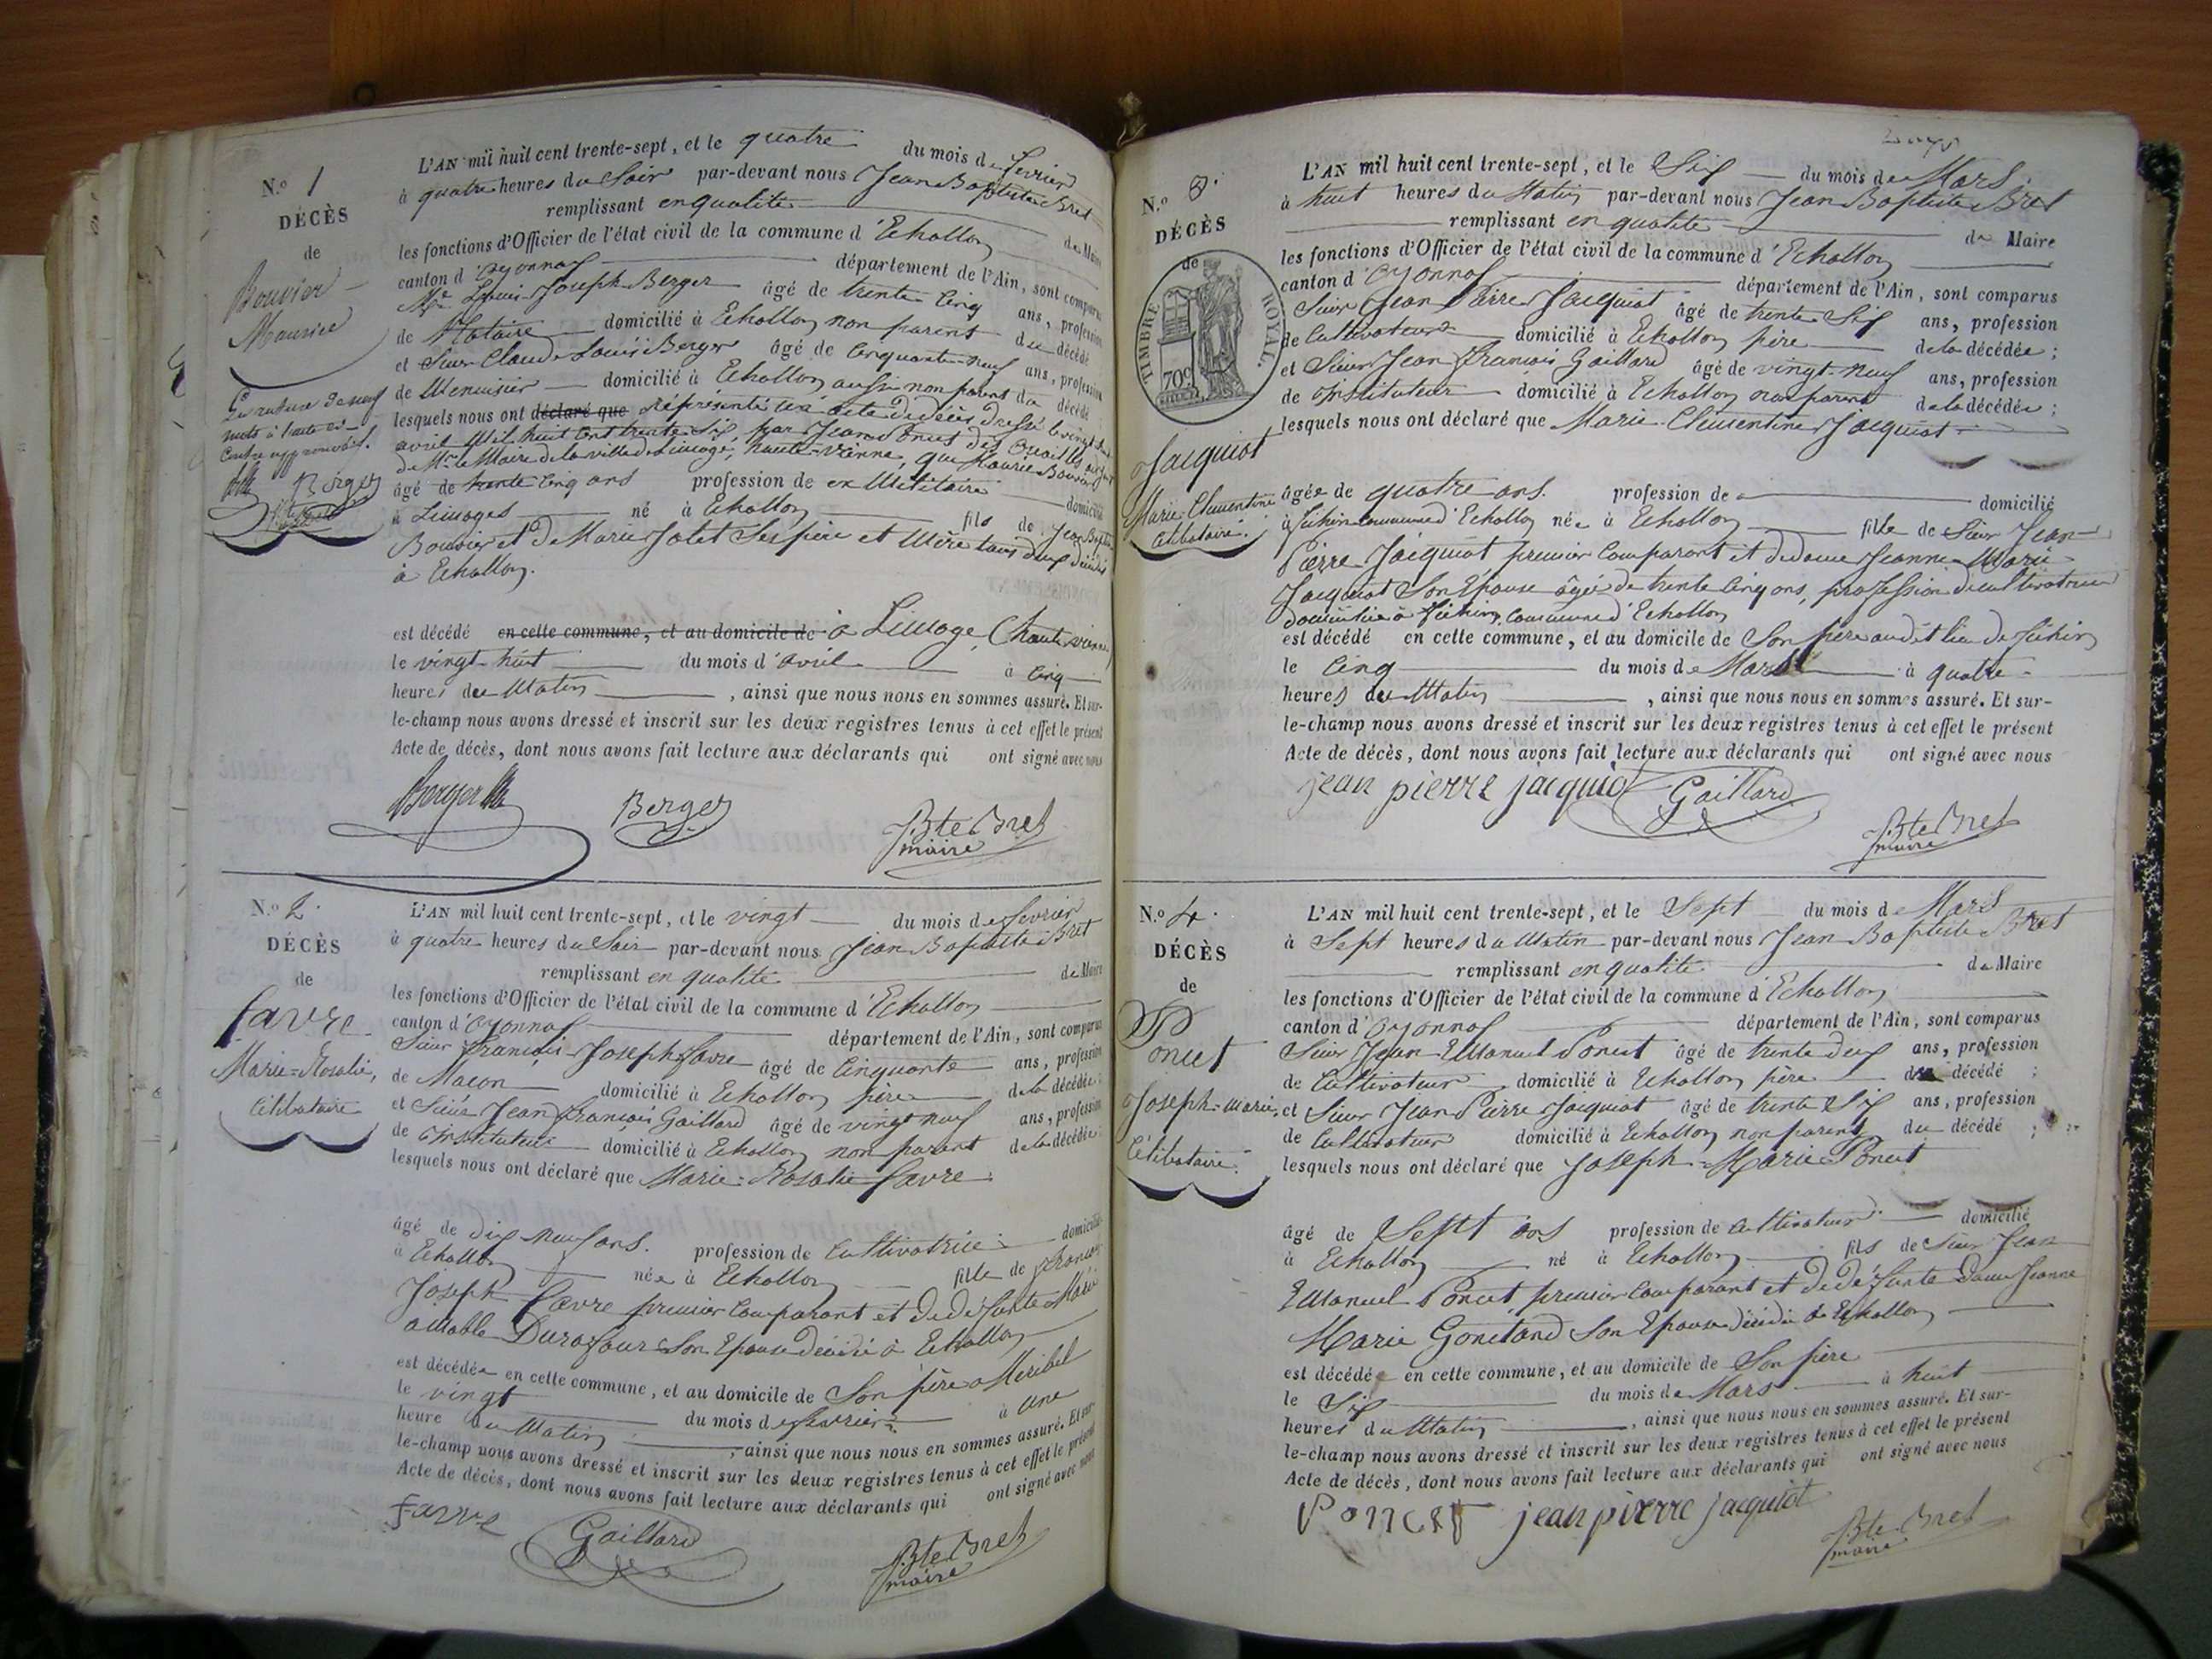 N.o 1
DÉCÈS
de
Bouvier
Maurice
La rature de neuf
mots à l'acte ci-
contre approuvée.
Berger
L'AN mil huit cent trente-sept, et le quatre du mois de fevrier
à quatre heures du Soir par-devant nous Jean Baptiste Bret
remplissant en qualité de Maire
les fonctions d'Officier de l'état civil de la commune d'Echallon
canton d'Oyonnax département de l'Ain, sont comparus
Me Louis-Joseph Berger âgé de trente cinq ans, profession
de Notaire domicilié à Echallon non parent du décédé
et Sieur Claude Louis Berger âgé de cinquante-neuf ans, profession
de Menuisier domicilié à Echallon aussi non parent du décédé
lesquels nous ont déclaré que représenté un acte de décès dressé le vingt huit
avril mil huit cent trente Six, par Jean Poncet des
de Mr le Maire de la ville de Limoge, haute-vienne, que Maurice Bouvier
âgé de trente cinq ans profession de ex Militaire domicilié
à Limoges né à Echallon fils de Jean Baptiste
Bouvier et de Marie Jolet Ses père et Mère tous deux décédés
à Echallon.
est décédé en cette commune, et au domicile de à Limoge, (haute vienne)
le vingt-huit du mois d'avril à cinq
heures du Matin, ainsi que nous nous en sommes assuré. Et sur-
le-champ nous avons dressé et inscrit sur les deux registres tenus à cet effet le présent
Acte de décès, dont nous avons fait lecture aux déclarants qui ont signé avec nous
Berger Berger JBte Bret
maire
N.o 2.
DÉCÈS
de
favre
Marie=Rosalie,
Célibataire
L'AN mil huit cent trente-sept, et le vingt du mois de fevrier
à quatre heures du Soir par-devant nous Jean Baptiste Bret
remplissant en qualité de Maire
les fonctions d'Officier de l'état civil de la commune d'Echallon
canton d'Oyonnax département de l'Ain, sont comparus
Sieur François-Joseph favre âgé de Cinquante ans, profession
de Maçon domicilié à Echallon père de la décédée
et Sieur Jean françois Gaillard âgé de vingt neuf ans, profession
de Instituteur domicilié à Echallon non parent de la décédée
lesquels nous ont déclaré que Marie=Rosalie favre
âgé de dix neuf ans. profession de Cultivatrice domicilié
à Echallon née à Echallon fille de françois
Joseph favre premier comparant et de défunte Marie
aimable Durafour Son Epouse décédé à Echallon
est décédée en cette commune, et au domicile de Son père a Meribel
le vingt du mois de fevrier à une
heure du Matin, ainsi que nous nous en sommes assuré. Et sur-
le-champ nous avons dressé et inscrit sur les deux registres tenus à cet effet le présent
Acte de décès, dont nous avons fait lecture aux déclarants qui ont signé avec nous
favre Gaillard JBte Bret
maire
N.o 3.
DÉCÈS
de
TIMBRE ROYAL.
70c
Jacquiot
Marie-Clementine
Célibataire.
L'AN mil huit cent trente-sept, et le Six du mois de Mars
à huit heures du Matin par-devant nous Jean Baptiste Bret
remplissant en qualité de Maire
les fonctions d'Officier de l'état civil de la commune d'Echallon
canton d'Oyonnax département de l'Ain, sont comparus
Sieur Jean Pierre Jacquiot âgé de trente Six ans, profession
de Cultivateur domicilié à Echallon père de la décédée;
et Sieur Jean françois Gaillard âgé de vingt-neuf ans, profession
de Instituteur domicilié à Echallon non parent de la décédée;
lesquels nous ont déclaré que Marie-Clementine Jacquiot
âgée de quatre ans. profession de domicilié
à commune d'Echallon née à Echallon fille de Sieur Jean
Pierre Jacquiot premier comparant et de dame Jeanne-Marie
Jacquiot Son Epouse âgée de trente cinq ans, profession de cultivatrice
domiciliée à commune d'Echallon
est décédé en cette commune, et au domicile de Son père audit lieu de
le cinq du mois de Mars à quatre
heures du Matin, ainsi que nous nous en sommes assuré. Et sur-
le-champ nous avons dressé et inscrit sur les deux registres tenus à cet effet le présent
Acte de décès, dont nous avons fait lecture aux déclarants qui ont signé avec nous
jean pierre jacquiot Gaillard JBte Bret
maire
N.o 4.
DÉCÈS
de
Poncet
Joseph-Marie,
Célibataire.
L'AN mil huit cent trente-sept, et le Sept du mois de Mars
à Sept heures du Matin par-devant nous Jean Baptiste Bret
remplissant en qualité de Maire
les fonctions d'Officier de l'état civil de la commune d'Echallon
canton d'Oyonnax département de l'Ain, sont comparus
Sieur Jean Emanuel Poncet âgé de trente deux ans, profession
de Cultivateur domicilié à Echallon père du décédé;
et Sieur Jean Pierre Jacquiot âgé de trente Six ans, profession
de Cultivateur domicilié à Echallon non parent du décédé;
lesquels nous ont déclaré que Joseph-Marie Poncet
âgé de Sept ans profession de cultivateur domicilié
à Echallon né à Echallon fils de Sieur Jean
Emanuel Poncet, premier comparant et de défunte Dame Jeanne
Marie Gonetand Son Epouse décédée à Echallon
est décédé en cette commune, et au domicile de Son père
le Six du mois de Mars à huit
heures du Matin, ainsi que nous nous en sommes assuré. Et sur-
le-champ nous avons dressé et inscrit sur les deux registres tenus à cet effet le présent
Acte de décès, dont nous avons fait lecture aux déclarants qui ont signé avec nous
Poncet jean pierre jacquiot JBte Bret
maire